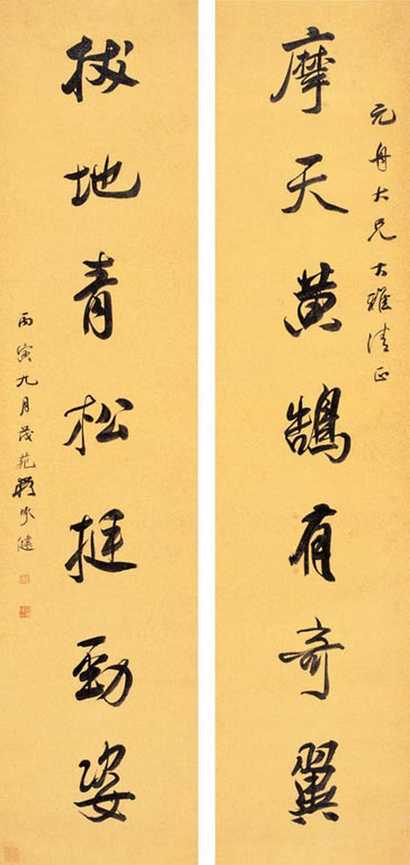 元舟大兄大雅清正
摩天黄鵠有奇翼
拔地青松挺勁姿
丙寅九月茂苑